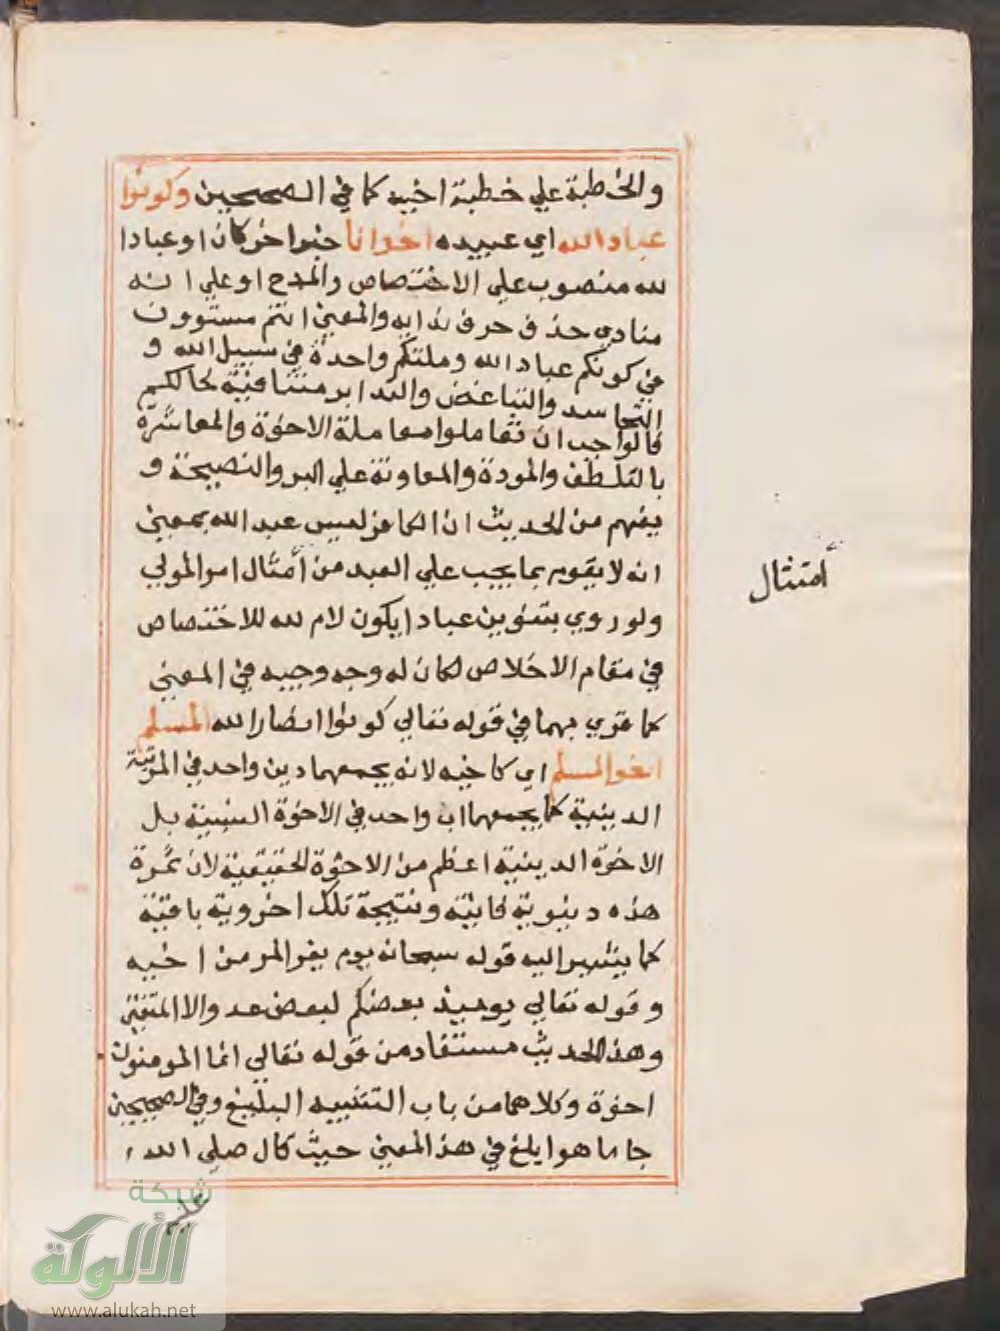 والخطبة علي خطبة اخيه كما في الصحيحين وكونوا
عباد الله اي عبيده اخوانا خبر اخر كان او عبادا
لله منصوب علي الاختصاص والمدح او علي انه
منادي حذف حرف ندايه والمعني انتم مستوون
في كونكم عباد الله وملتكم واحدة في سبيل الله و
التحاسد والتباغض والتدابر منافية لحالكم
فالواجب ان تعاملوا معاملة الاخوة والمعاشرة
بالتلطف والمودة والمعاونة علي البر والنصيحة و
يفهم من الحديث ان الكافر ليس عبد الله بمعني
انه لا يقوم بما يجب علي العبد من أمثال امر المولي
ولو روي بتنوين عبادا يكون لام لله للاختصاص
في مقام الاخلاص لكان له وجه وجيه في المعني
كما قري بهما في قوله تعالي كونوا انصار الله المسلم
اخو المسلم اي كاخيه لانه يجمعهما دين واحد في المرتبة
الدينية كما يجمعهما اب واحد في الاخوة النسبية بل
الاخوة الدينية اعظم من الاخوة الحقيقية لان ثمرة
هذه دنيوية فانية ونتيجة تلك اخروية باقية
كما يشير اليه قوله سبحانه يوم يفر المر من اخيه
وقوله تعالي يوميذ بعضكم لبعض عدو الا المتقين
وهذا الحديث مستفاد من قوله تعالي انما المومنون
اخوة وكلاهما من باب التشبيه البليغ وفي الصحيحين
جا ما هو ابلغ في هذا المعني حيث قال صلي الله
عليه
أمتثال
شبكة
الألوكة
www.alukah.net